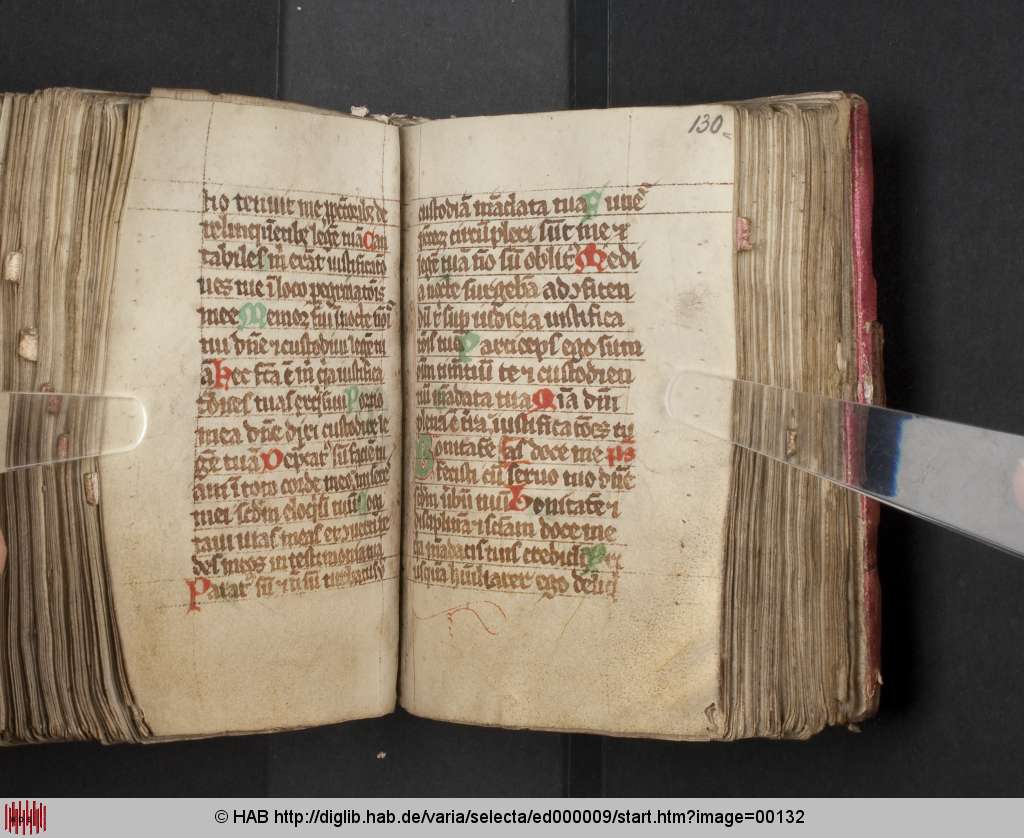 tio tenuit me p̱ctoribꝫ de
relinquētibꝫ legē tuā Can
tabiles m̄ erāt iustificatō
nes tue ī loco pegrinatōīs
mee Memor fui ī nocte
tui dn̄e ⁊ custodiui legē tuā
Hec fc̄a ē m̄ qꝛ iustifica
tōnes tuas exq̄siui Portio
mea dn̄e dixi custodire le
gē tuā Depcat᷒ sū faciē
tuā ī toto corde meo miserere
mei scd̄m eloqm̄ tuū
taui uias meas ⁊ ꝯuerti pe
des meos in testimonia tua
Parat᷒ sū ⁊ nō sū turbatus
custodiā mādata tua Fune
pctōꝝ circūplexi sūt me ⁊
legē tuā nō sū oblit᷒ Medi
a nocte surgebā ad ꝯfiten
dū t̄ sup iudicia iustifica
tōīs tue Particeps ego sum
oīm timētiū te ⁊ custodien
tiū mādata tua Mīa dn̄i
plena ē tr̄a iustificatōes tu
as doce me p̄s
Bonitatē
fecisti cū seruo tuo dn̄e
scd̄m ubū tuū Bonitatē ⁊
disciplinā ⁊ sciām doce me
q̄ mādatis tuis credidi Pri
usquā humiliarer ego deliq̄
130
© HAB http://diglib.hab.de/varia/selecta/ed000009/start.htm?image=00132